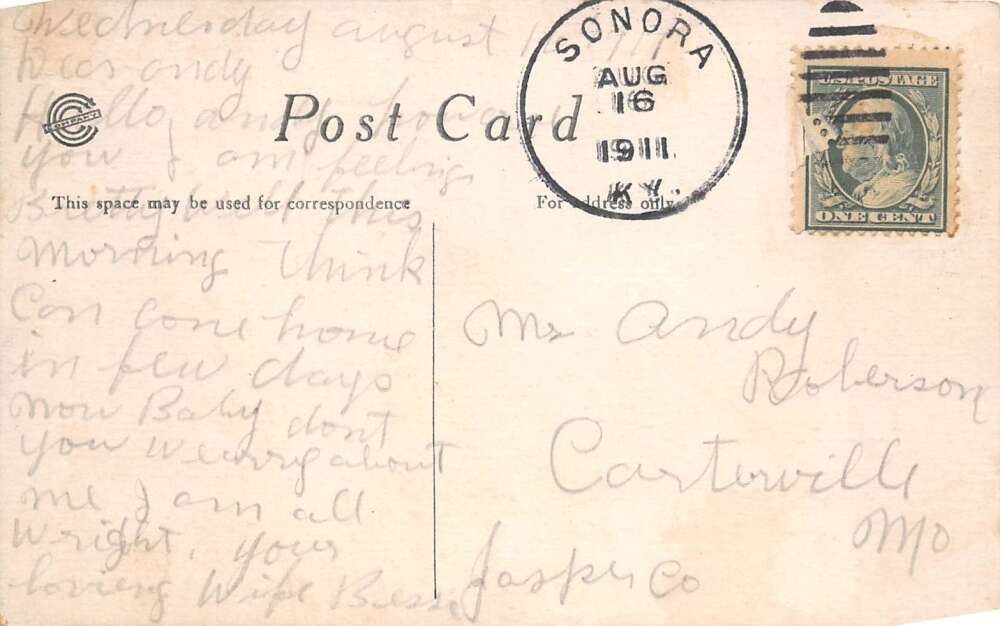 Wednesday august 1911
Dear andy
Hello, andy how are
you I am feeling
Pretty well this
Morning think
Can come home
in few days
now Baby dont
you wearry about
me I am all
wright, your
loving Wife Bess
C COMPANY
Post Card
This space may be used for correspondence
For address only.
SONORA
AUG
16
1911
KY.
U.S. POSTAGE
ONE CENT
Mr Andy
Roberson
Carterville
Mo
Jasper Co